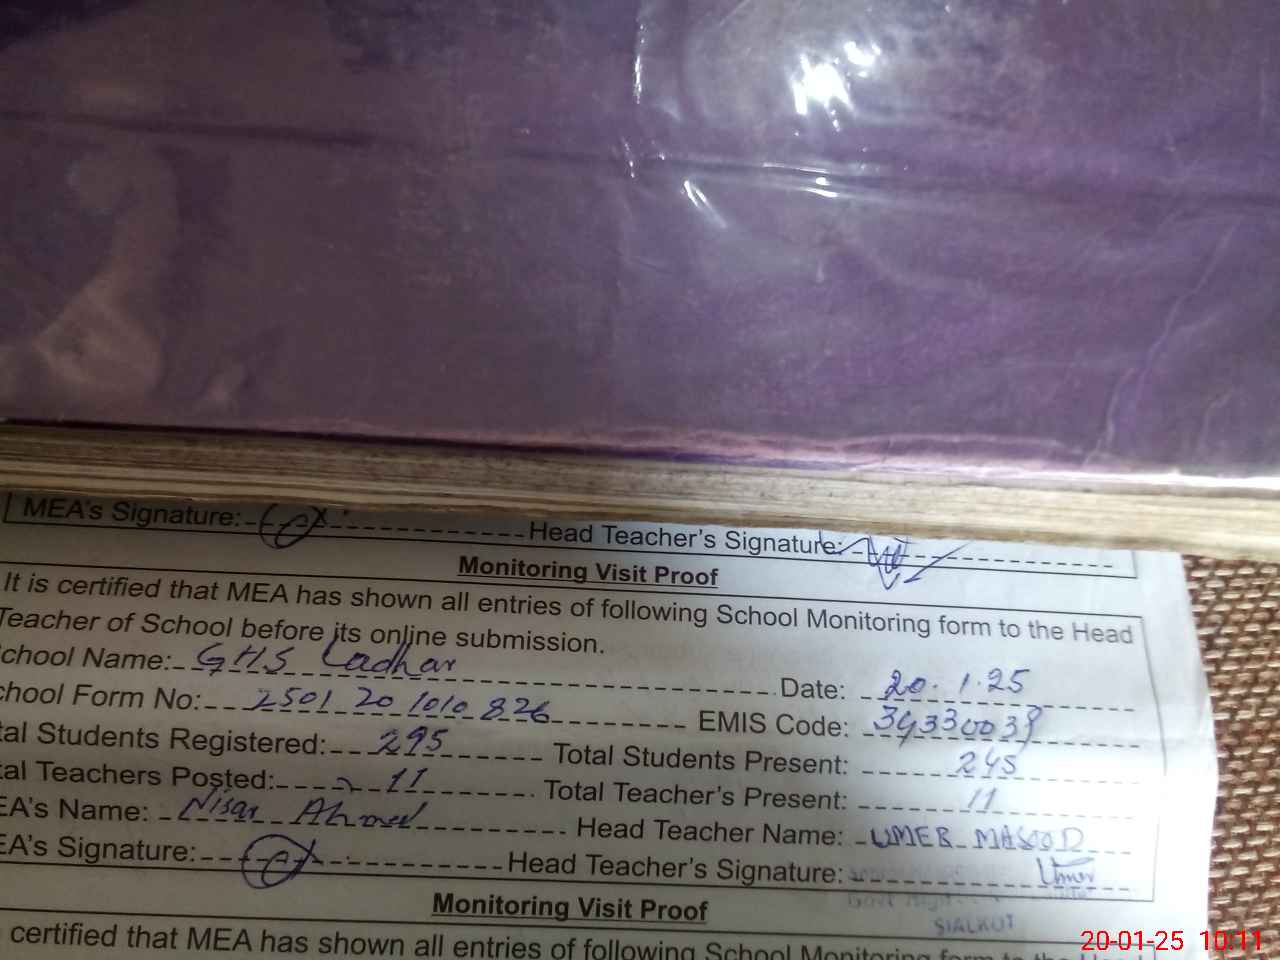 MEA's Signature: Head Teacher's Signature:
Monitoring Visit Proof
It is certified that MEA has shown all entries of following School Monitoring form to the Head
Teacher of School before its online submission.
chool Name: GHS Ladhar Date: 20.1.25
chool Form No: 2501 20 1010 826 EMIS Code: 34330039
tal Students Registered: 295 Total Students Present: 245
tal Teachers Posted: 11 Total Teacher's Present: 11
EA's Name: Nisar Ahmed Head Teacher Name: UMER MASOOD
EA's Signature: Head Teacher's Signature: Umer
SIALKOT
Monitoring Visit Proof
certified that MEA has shown all entries of following School Monitoring form to the Head
20-01-25 10:11